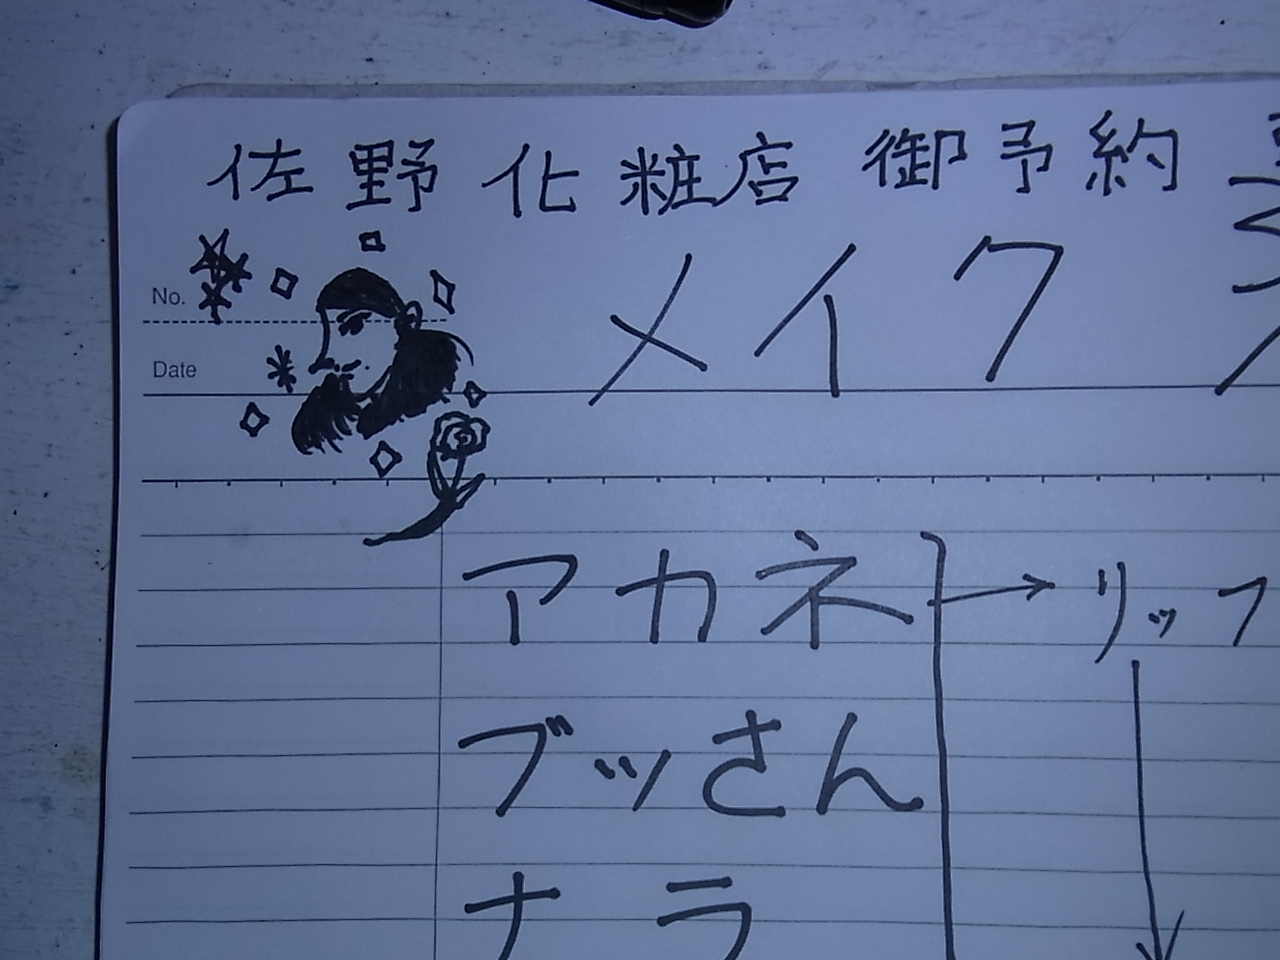 佐野化粧店 御予約
メイク
No.
Date
アカネ → リッフ
ブッさん
ナラ